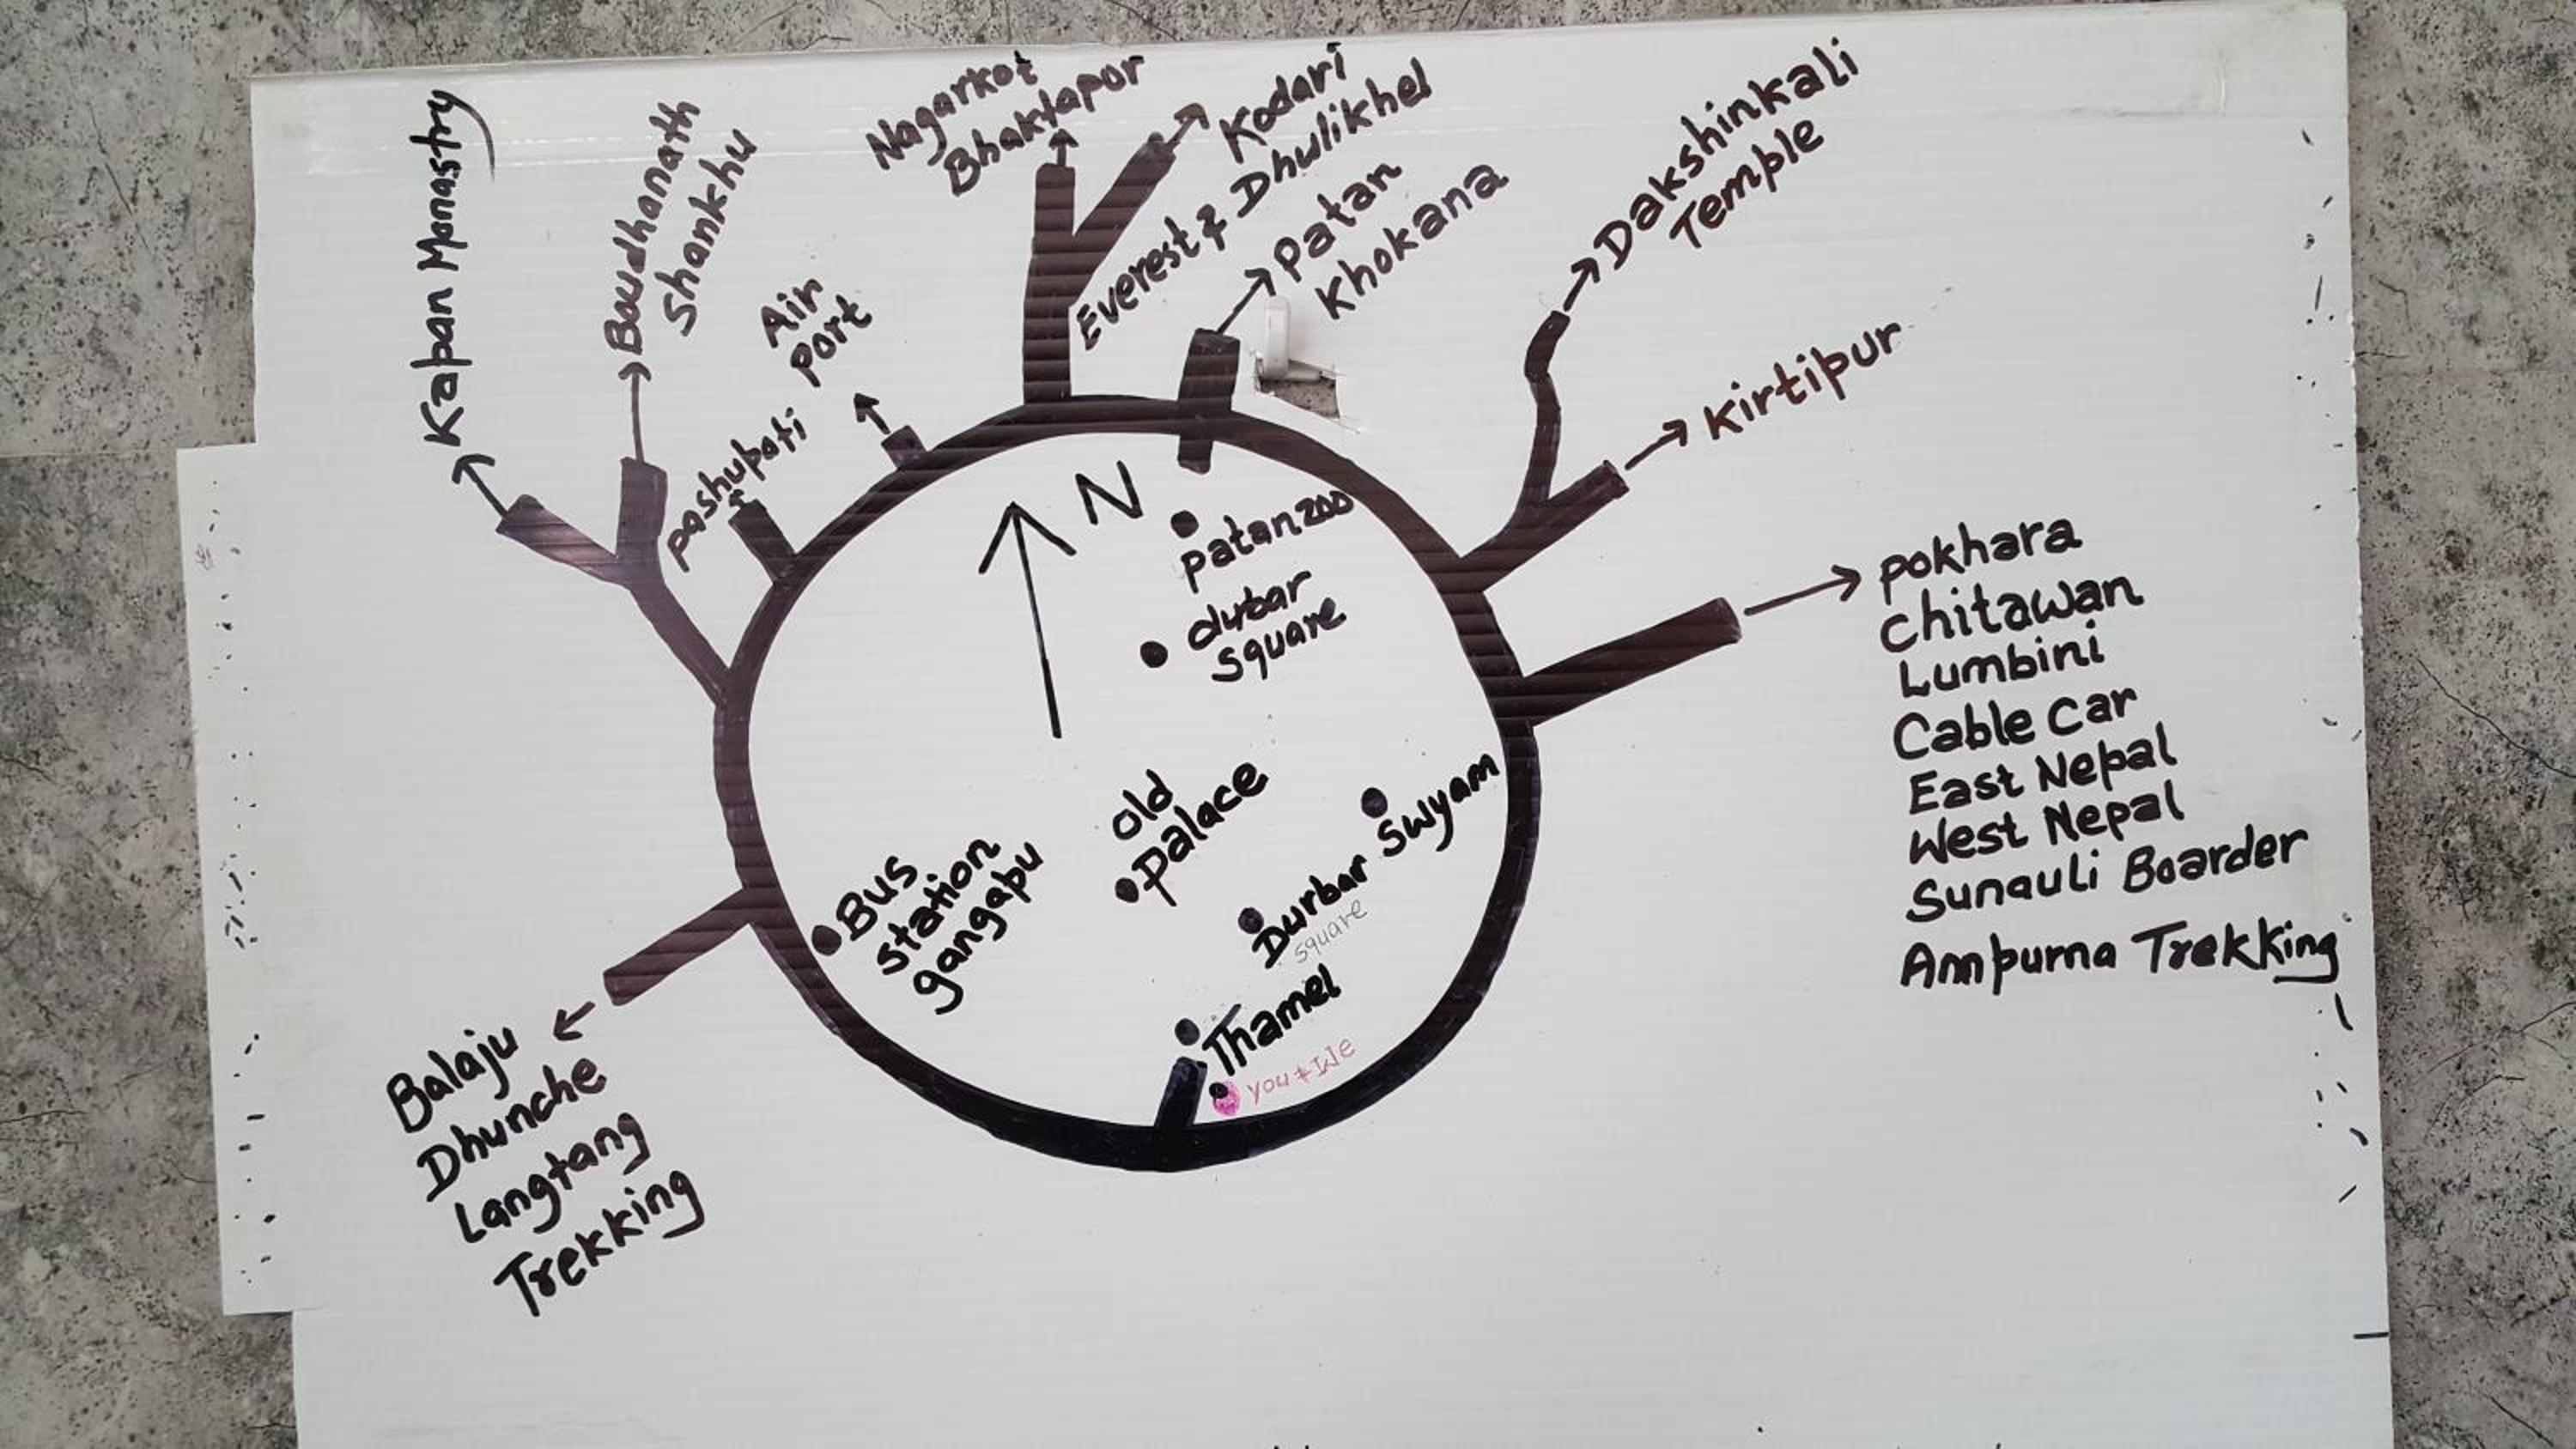 Kapan Monastry
Boudhanath
Shankhu
pashupati
Air
Port
Nagarkot
Bhaktapor
Kodari
Everest & Dhulikhel
Patan
Khokana
Dakshinkali
Temple
Kirtipur
pokhara
chitawan
Lumbini
Cable Car
East Nepal
West Nepal
Sunauli Boarder
Annpurna Trekking
N
patanzoo
durbar
square
Old
palace
Swyam
Durbar
square
Bus
station
gangapu
Thamel
you + We
Balaju
Dhunche
Langtang
Trekking